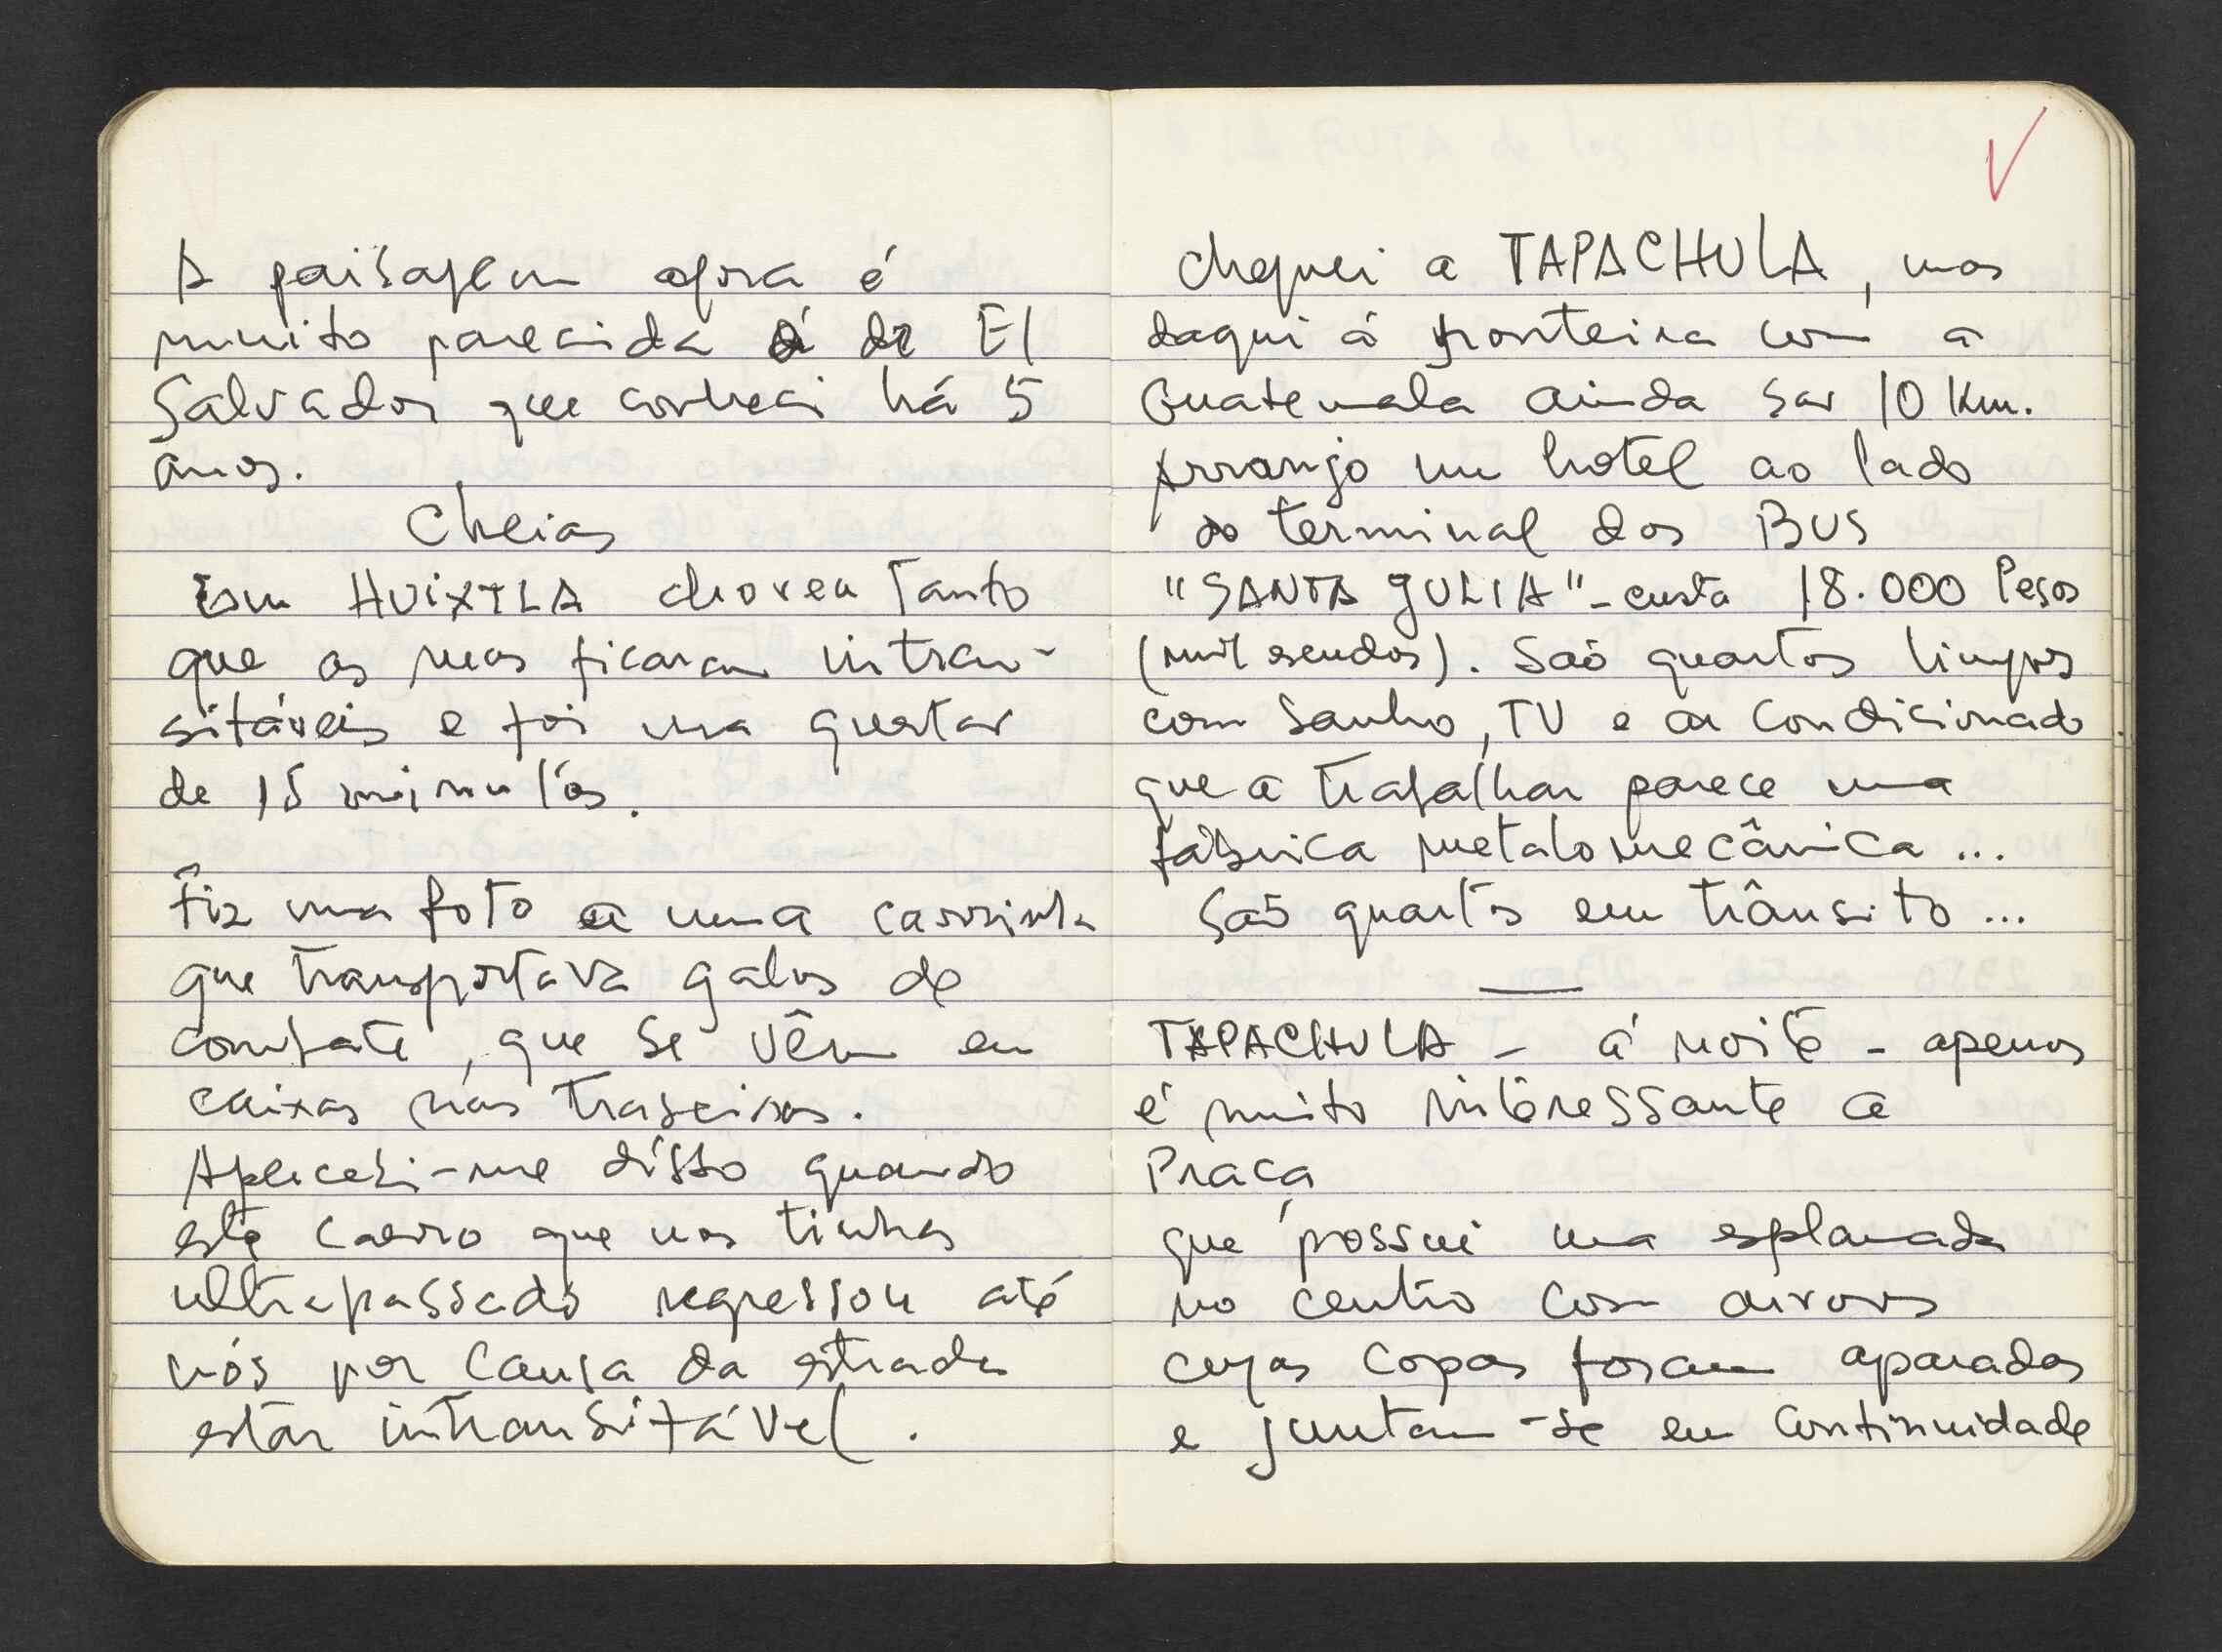 A paisagem agora é
muito parecida á de El
Salvador que conheci há 5
anos.
Cheias
Em HUIXTLA choveu tanto
que as ruas ficaram intran-
sitáveis e foi uma questão
de 15 minutos.
Fiz uma foto a uma carrinha
que transportava galos de
combate, que se vêm em
caixas nas traseiras.
Apercebi-me disso quando
este carro que nos tinha
ultrapassado regressou até
nós por causa da estrada
estar intransitável.
Cheguei a TAPACHULA, mas
daqui á fronteira com a
Guatemala ainda são 10 Km.
Arranjo um hotel ao lado
do terminal dos BUS
"SANTA JULIA" - custa 18.000 Pesos
(mil escudos). São quartos limpos
com banho, TV e ar condicionado
que a trabalhar parece uma
fábrica metalomecânica ...
São quartos em trânsito ...
TAPACHULA - á noite - apenas
é muito interessante a
Praça
que possui uma esplanada
no centro com árvores
cujas copas foram aparadas
e juntam-se em continuidade